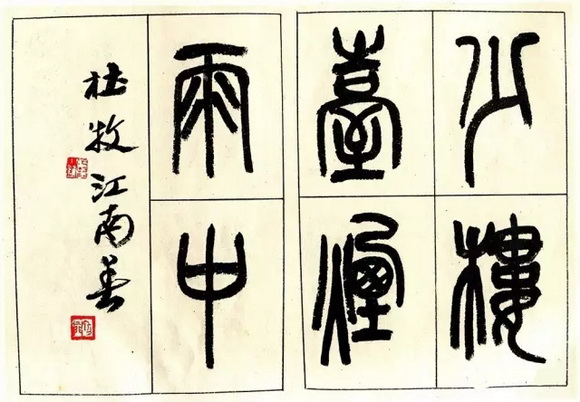 少樓
臺煙
雨中
杜牧江南春